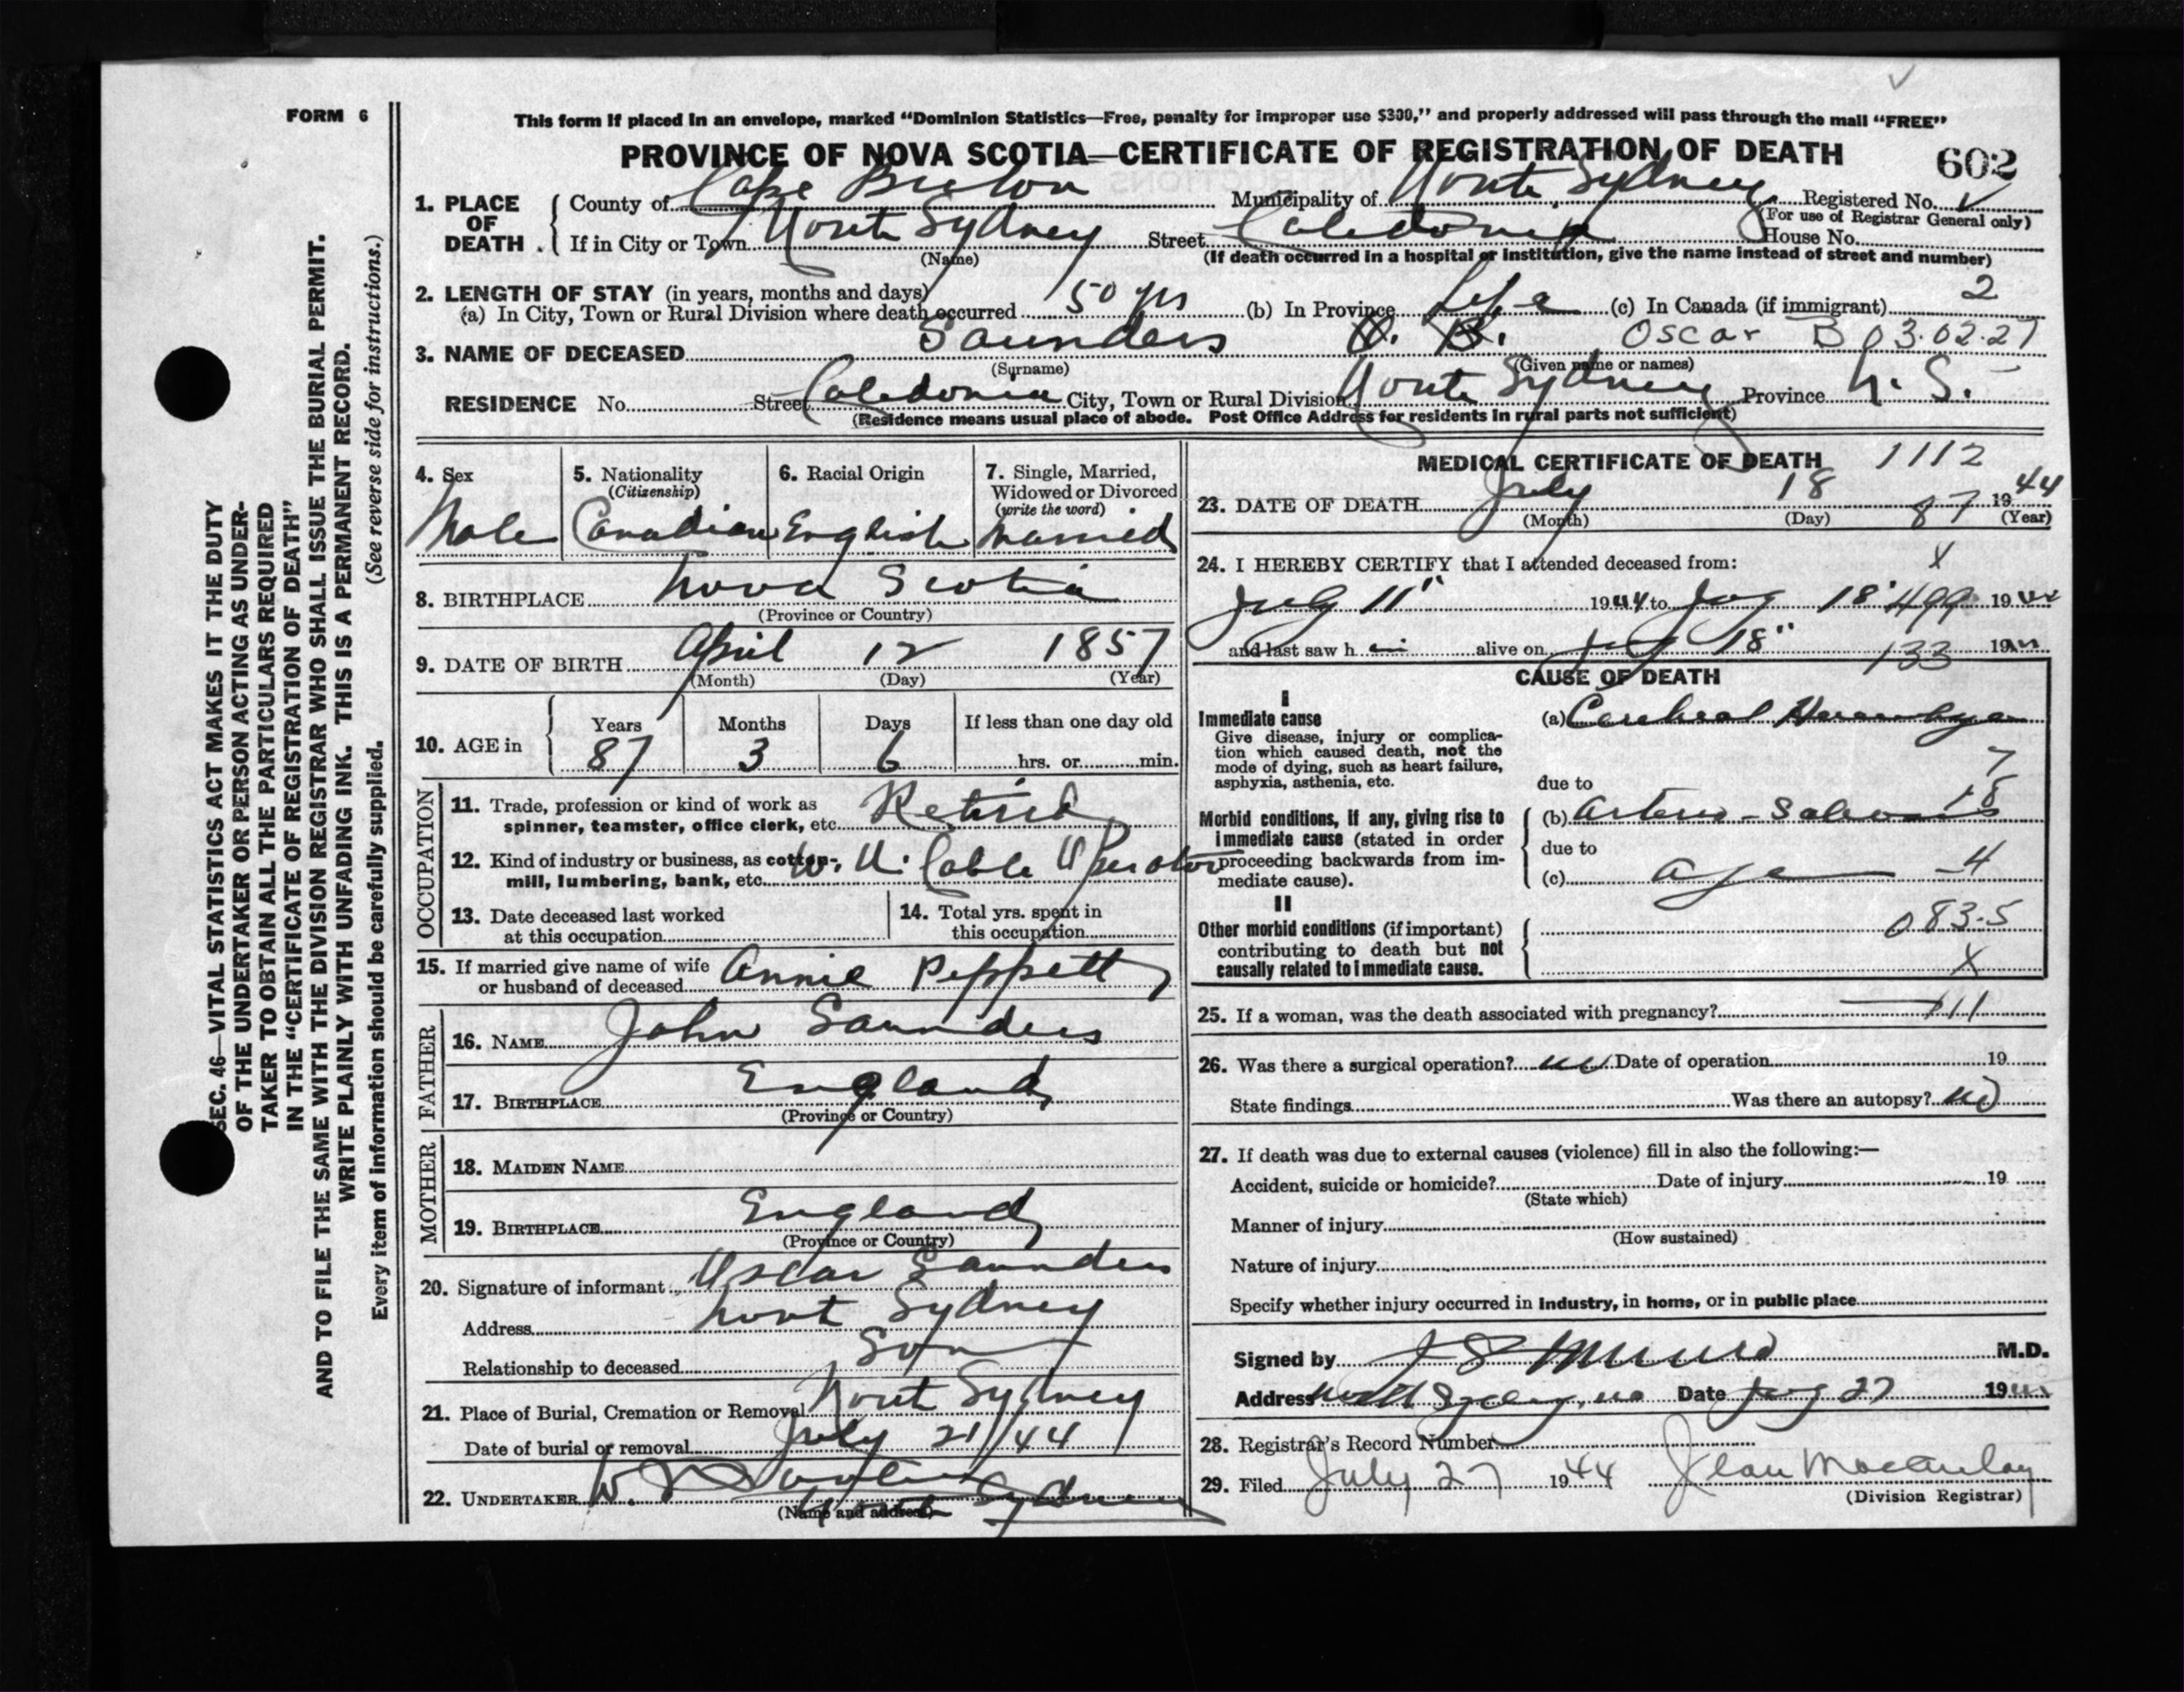 FORM 6
This form if placed in an envelope, marked “Dominion Statistics—Free, penalty for improper use $300,” and properly addressed will pass through the mail “FREE”
PROVINCE OF NOVA SCOTIA—CERTIFICATE OF REGISTRATION OF DEATH
602
1. PLACE OF DEATH
County of Cape Breton Municipality of North Sydney Registered No.
(For use of Registrar General only)
If in City or Town North Sydney Street Caledonia House No.
(Name) (If death occurred in a hospital or institution, give the name instead of street and number)
2. LENGTH OF STAY (in years, months and days)
(a) In City, Town or Rural Division where death occurred 50 yrs (b) In Province Life (c) In Canada (if immigrant) 2
3. NAME OF DECEASED Saunders O. B. Oscar B 03.02.27
(Surname) (Given name or names)
RESIDENCE No. Street Caledonia City, Town or Rural Division North Sydney Province N. S.
(Residence means usual place of abode. Post Office Address for residents in rural parts not sufficient)
SEC. 46—VITAL STATISTICS ACT MAKES IT THE DUTY
OF THE UNDERTAKER OR PERSON ACTING AS UNDER-
TAKER TO OBTAIN ALL THE PARTICULARS REQUIRED
IN THE “CERTIFICATE OF REGISTRATION OF DEATH”
AND TO FILE THE SAME WITH THE DIVISION REGISTRAR WHO SHALL ISSUE THE BURIAL PERMIT.
WRITE PLAINLY WITH UNFADING INK. THIS IS A PERMANENT RECORD.
Every item of information should be carefully supplied. (See reverse side for instructions.)
4. Sex
Male
5. Nationality
(Citizenship)
Canadian
6. Racial Origin
English
7. Single, Married,
Widowed or Divorced
(write the word)
Married
8. BIRTHPLACE Nova Scotia
(Province or Country)
9. DATE OF BIRTH April 12 1857
(Month) (Day) (Year)
10. AGE in
Years Months Days If less than one day old
87 3 6 hrs. or min.
OCCUPATION
11. Trade, profession or kind of work as
spinner, teamster, office clerk, etc. Retired
12. Kind of industry or business, as cotton-
mill, lumbering, bank, etc. W. U. Cable Operator
13. Date deceased last worked
at this occupation
14. Total yrs. spent in
this occupation
15. If married give name of wife
or husband of deceased Annie Peppett
FATHER
16. NAME John Saunders
17. BIRTHPLACE England
(Province or Country)
MOTHER
18. MAIDEN NAME
19. BIRTHPLACE England
(Province or Country)
20. Signature of informant Oscar Saunders
Address North Sydney
Relationship to deceased Son
21. Place of Burial, Cremation or Removal North Sydney
Date of burial or removal July 21/44
22. UNDERTAKER W. North Sydney
(Name and address)
MEDICAL CERTIFICATE OF DEATH 1112
23. DATE OF DEATH July 18 1944
(Month) (Day) 87 (Year)
24. I HEREBY CERTIFY that I attended deceased from: X
July 11" 1944 to 18" 499 1944
and last saw h im alive on 18" 133 19
CAUSE OF DEATH
I
Immediate cause
Give disease, injury or complica-
tion which caused death, not the
mode of dying, such as heart failure,
asphyxia, asthenia, etc.
(a) Cerebral
7
due to
Morbid conditions, if any, giving rise to
immediate cause (stated in order
proceeding backwards from im-
mediate cause).
(b) Arterio-
due to
(c) Age 4
II
Other morbid conditions (if important)
contributing to death but not
causally related to immediate cause.
083.5
X
25. If a woman, was the death associated with pregnancy? 111
26. Was there a surgical operation? no Date of operation 19
State findings Was there an autopsy? no
27. If death was due to external causes (violence) fill in also the following:—
Accident, suicide or homicide? Date of injury 19
(State which)
Manner of injury
(How sustained)
Nature of injury
Specify whether injury occurred in Industry, in home, or in public place
Signed by Munro M.D.
Address North Sydney, NS Date 27 19
28. Registrar's Record Number
29. Filed July 27 1944 Jean MacAulay
(Division Registrar)